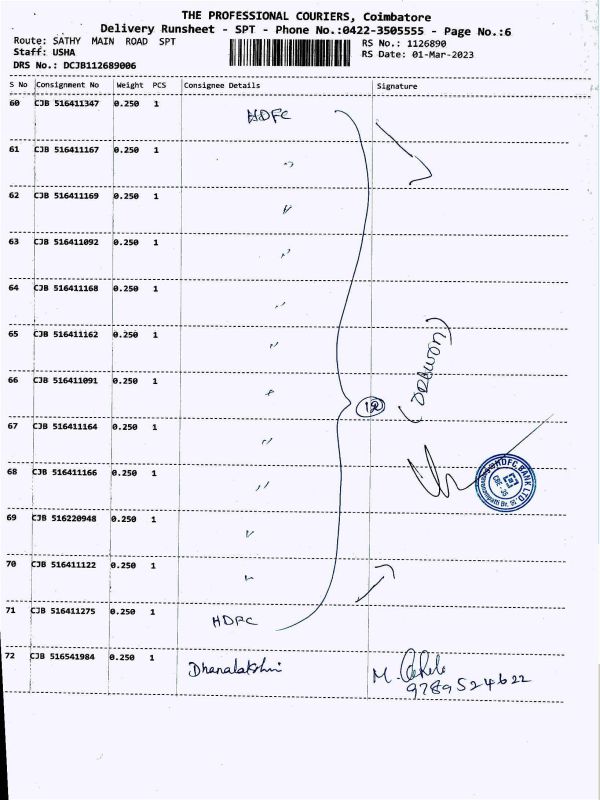 THE PROFESSIONAL COURIERS, Coimbatore
Delivery Runsheet - SPT - Phone No.:0422-3505555 - Page No.:6
Route: SATHY MAIN ROAD SPT
RS No.: 1126890
Staff: USHA
RS Date: 01-Mar-2023
DRS No.: DCJB112689006
S No Consignment No Weight PCS Consignee Details Signature
60 CJB 516411347 0.250 1 HDFC
61 CJB 516411167 0.250 1 "
62 CJB 516411169 0.250 1 "
63 CJB 516411092 0.250 1 "
64 CJB 516411168 0.250 1 "
65 CJB 516411162 0.250 1 "
66 CJB 516411091 0.250 1 "
12
67 CJB 516411164 0.250 1 "
68 CJB 516411166 0.250 1 "
HDFC BANK LTD
69 CJB 516220948 0.250 1 "
70 CJB 516411122 0.250 1 "
71 CJB 516411275 0.250 1 HDFC
72 CJB 516541984 0.250 1 Dhanalakshmi M.
9789524622